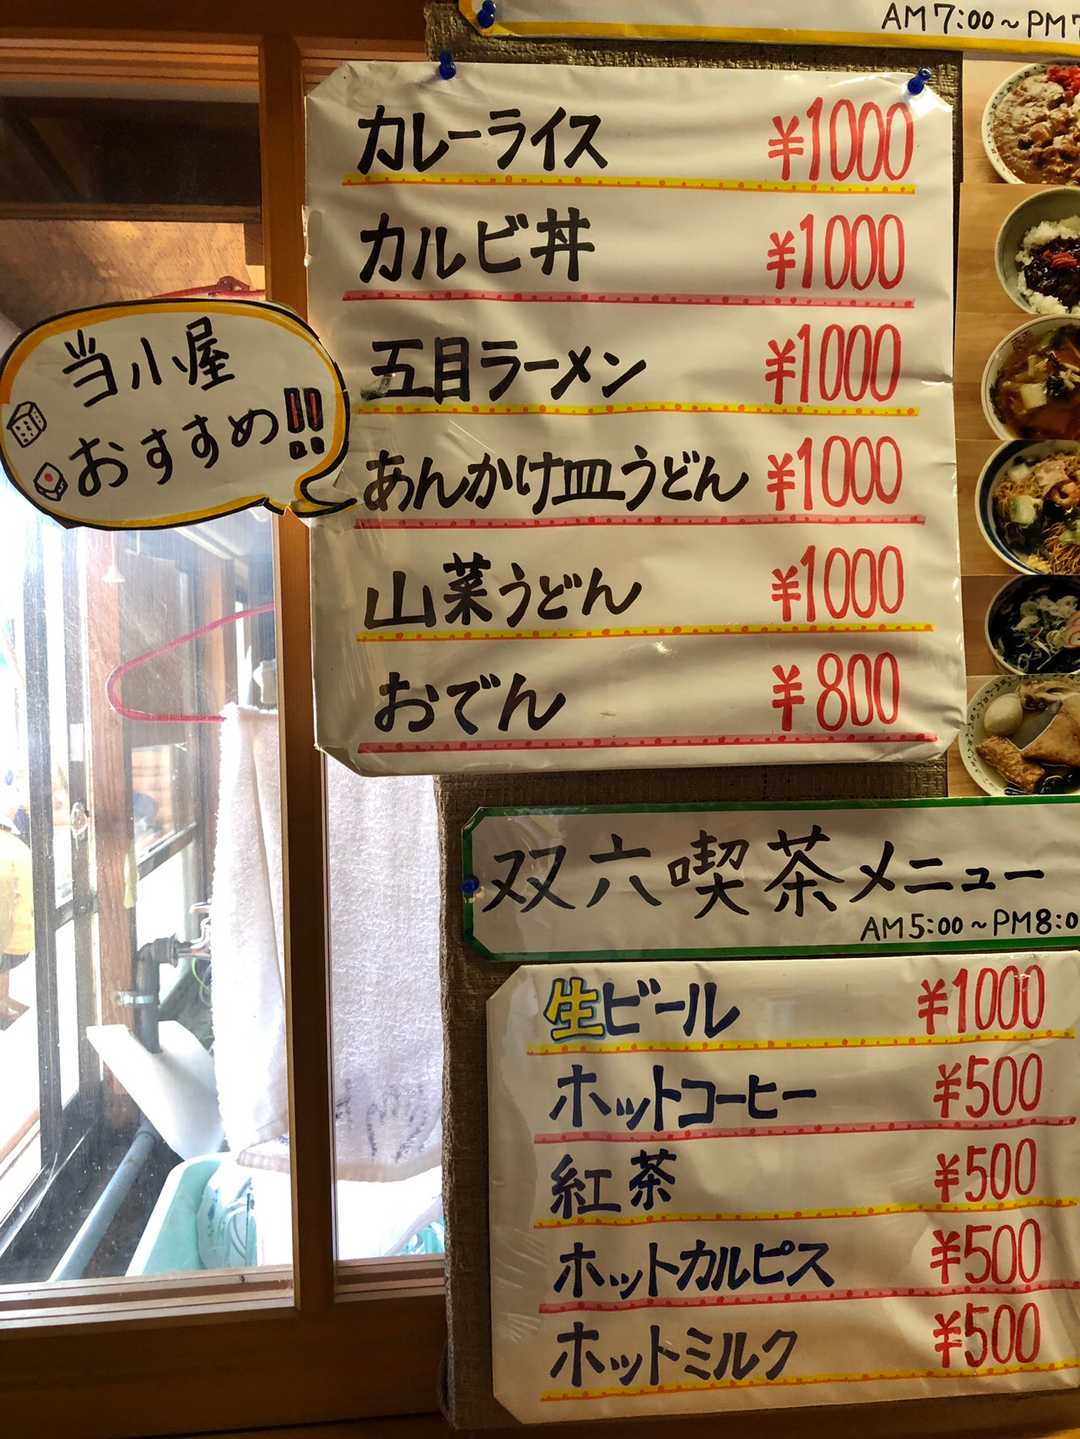 AM7:00～PM7
カレーライス ¥1000
カルビ丼 ¥1000
五目ラーメン ¥1000
あんかけ皿うどん ¥1000
山菜うどん ¥1000
おでん ¥800
当小屋
おすすめ!!
双六喫茶メニュー
AM5:00～PM8:0
生ビール ¥1000
ホットコーヒー ¥500
紅茶 ¥500
ホットカルピス ¥500
ホットミルク ¥500